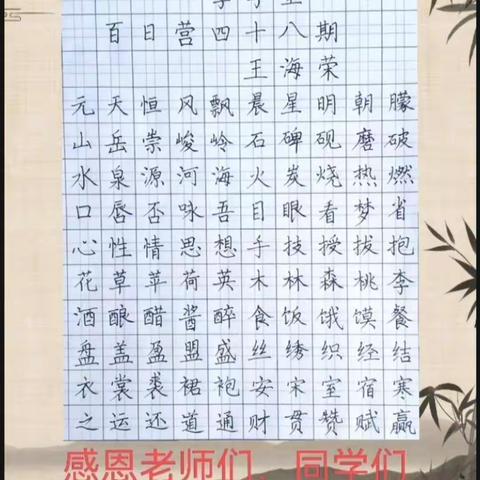 百日营四十八期
王海荣
元天恒风飘晨星明朝朦
山岳崇峻岭石碑砚磨破
水泉源河海火炭烧热燃
口唇否咏吾目眼看梦省
心性情思想手技授拔抱
花草苹荷英木林森桃李
酒酿醋酱醉食饭饿馍餐
盘盖盈盟盛丝绣织经结
衣裳裘裙袍安宋室宿寒
之运还道通财贯赞赋赢
感恩老师们，同学们